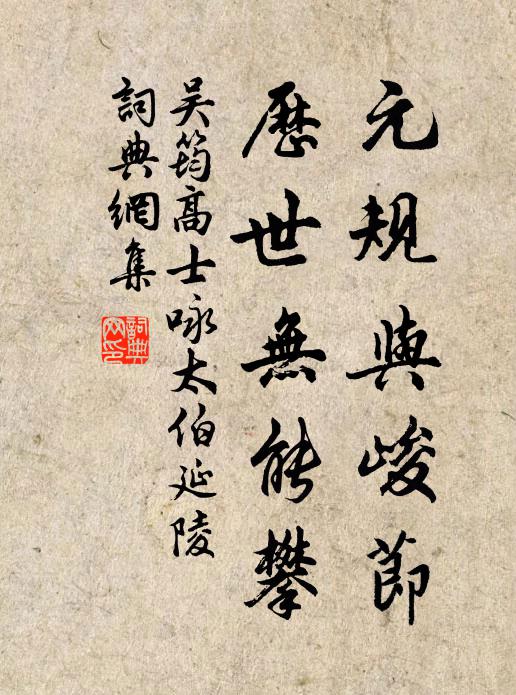 元規與峻節
歷世無能攀
吴筠高士咏太伯延陵
詞典網集
詞典网印